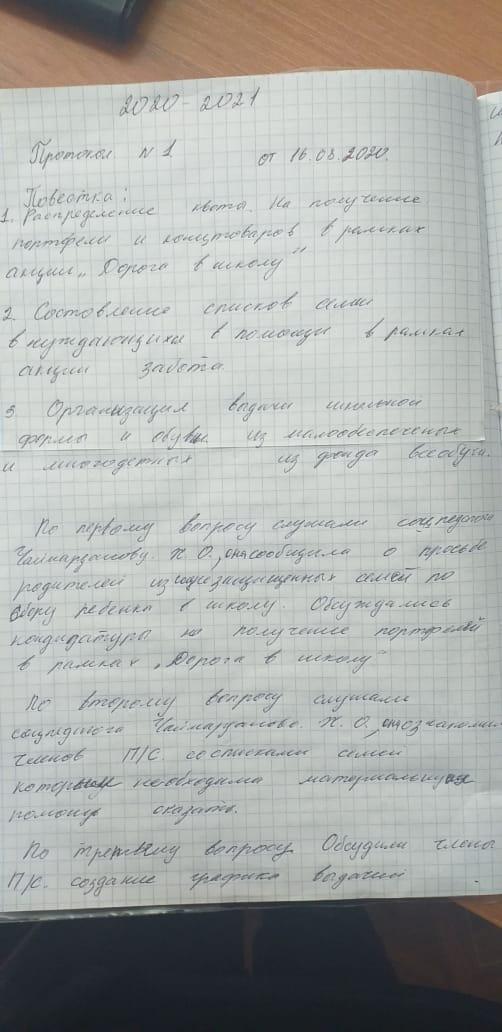 2020-2021
Протокол N 1. от 16.08.2020.
Повестка:
1. Распределение квоты. На получение
портфели и канцтоваров в рамках
акции „Дорога в школу"
2. Состовление списков семи
в нуждающихся в помощи в рамках
акции забота.
3. Организация выдачи школьной
формы и обуви из малообеспеченых
и многодетных из фонда всеобуча.
По первому вопросу слушали соцпедагога
Чаймарданову. Ж О., она сообщила о просьбе
родителей из соцнезащищенных семей по
сбору ребенка в школу. Обсуждались
кандидатуры на получение портфелей
в рамках „Дорога в школу"
По второму вопросу слушали
соцпедагога Чаймарданово. Ж. О,
членов П/С. со списками семей
которым необходима материальную
помощь оказать.
По третьему вопросу Обсудили члены
П/С. создание графика выдачи